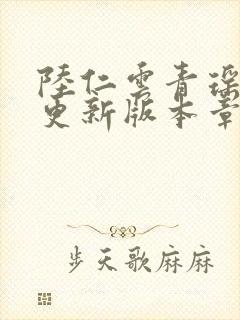 陸仁雲青瑶
更新版本章
步天歌麻麻